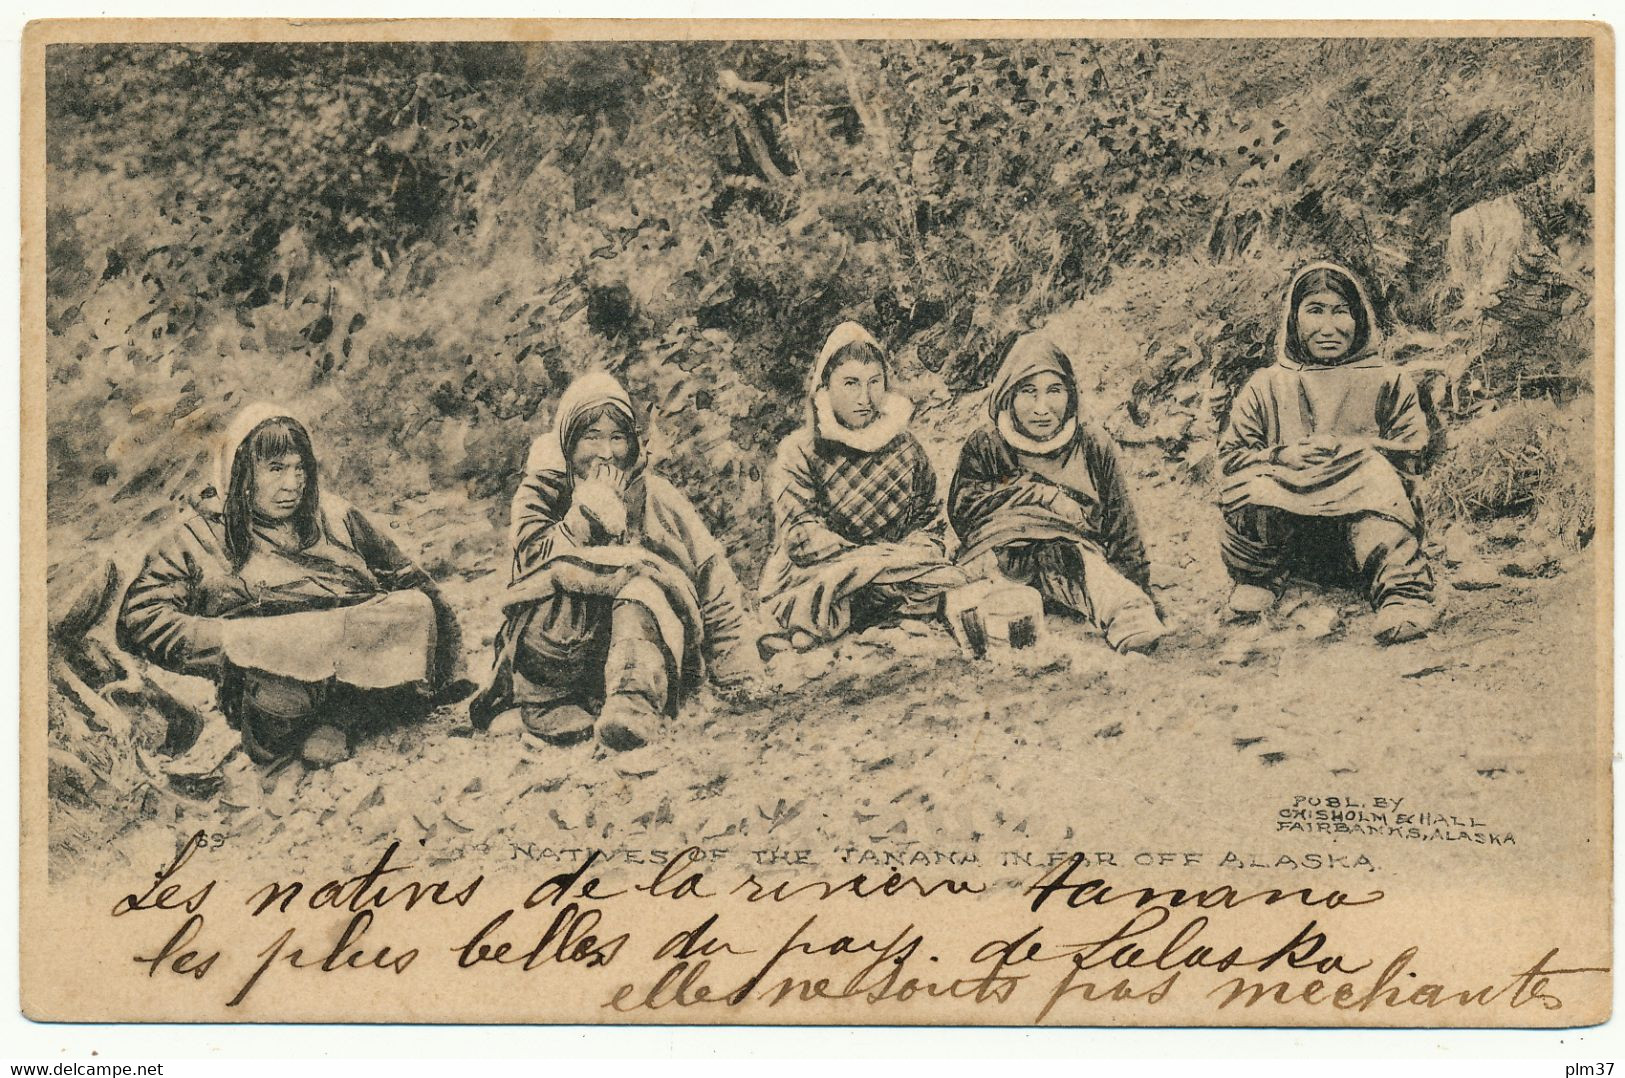 PUBL. BY
CHISHOLM & HALL
FAIRBANKS, ALASKA
69
NATIVES OF THE TANANA IN FAR OFF ALASKA.
Les natives de la riviera tanana
les plus belles du pays. de Lalaska
elles ne sonts pas mechantes
delcampe.net
plm37